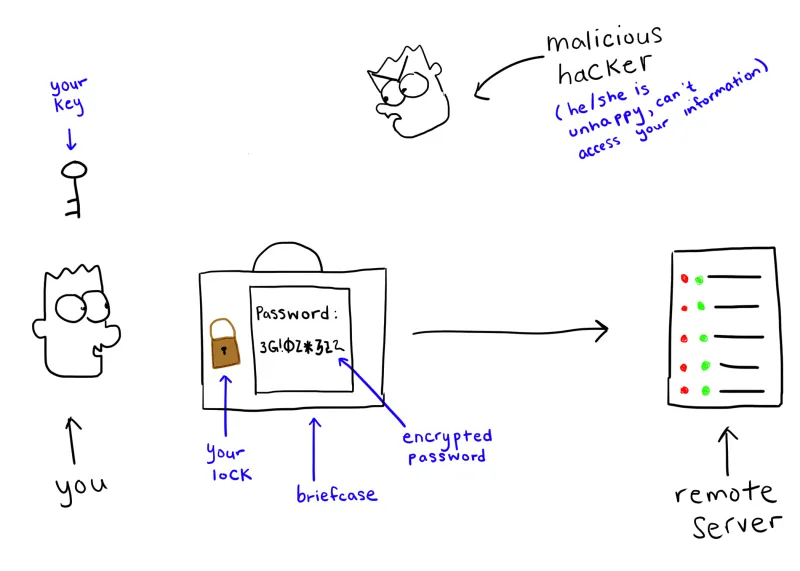 your
key
malicious
hacker
(he/she is
unhappy, can't
access your information)
Password:
3G!ØZ*322
your
lock
briefcase
encrypted
password
you
remote
server